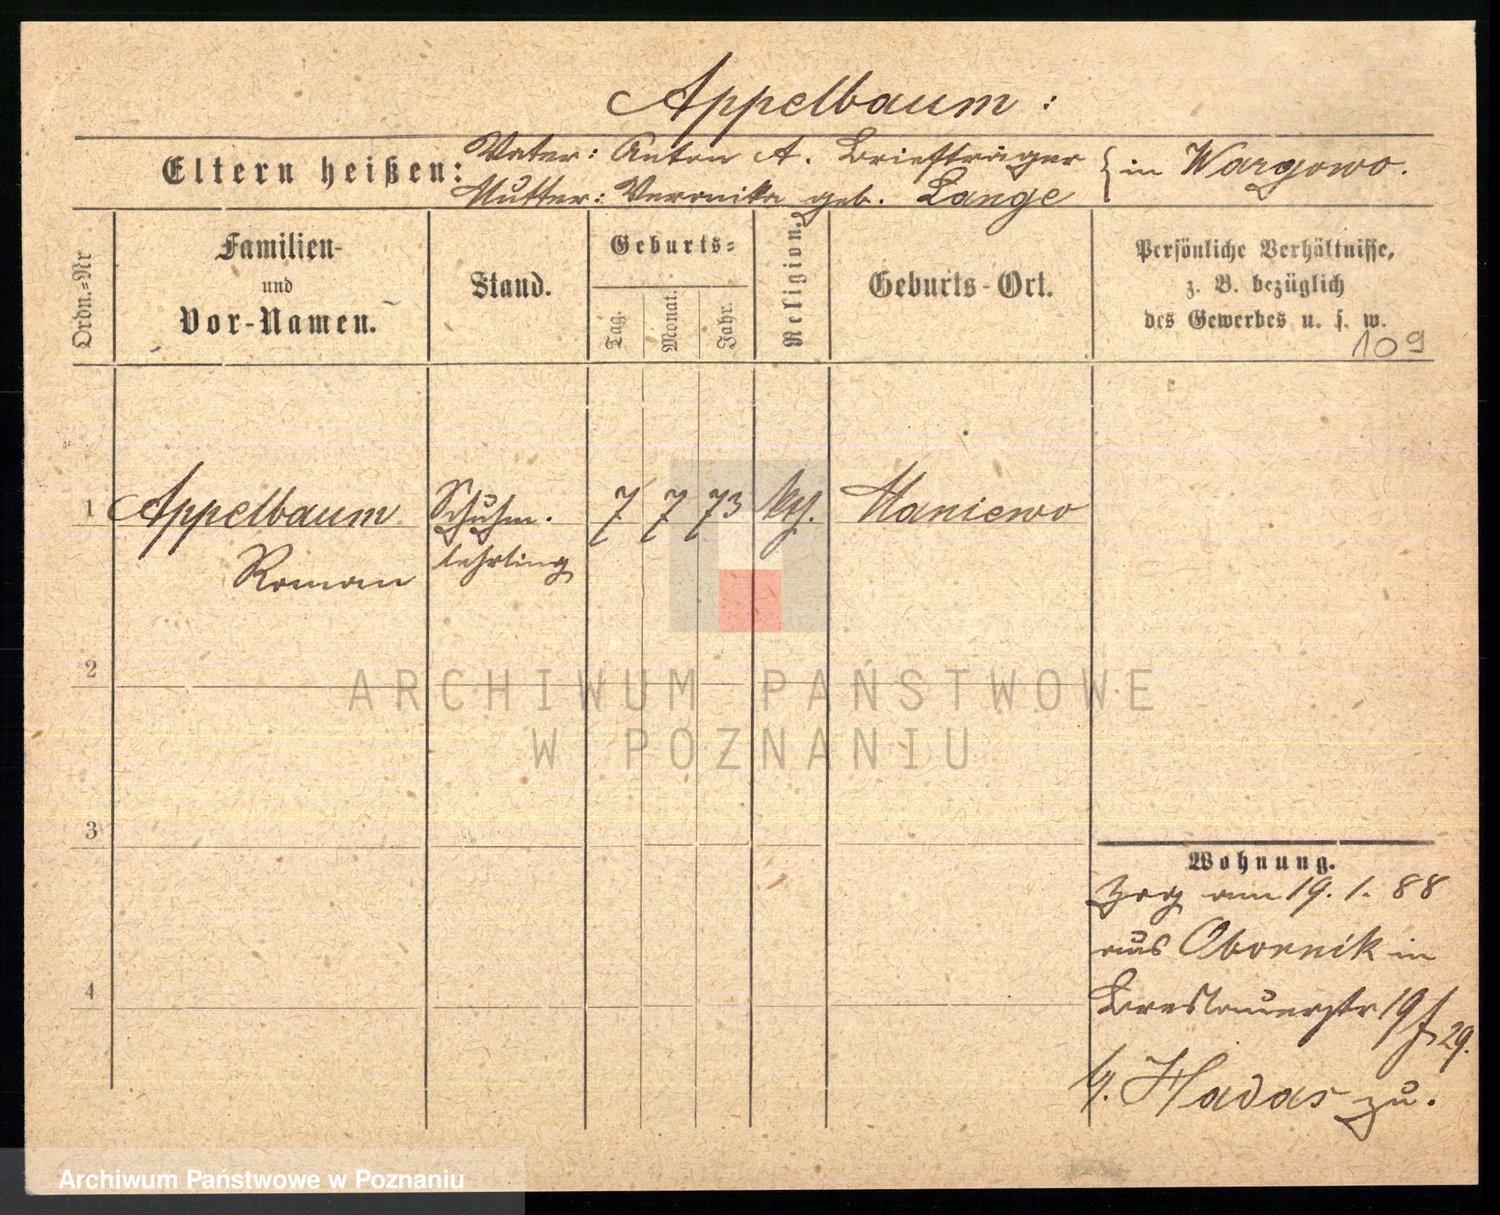 Appelbaum:
Eltern heißen: Vater: Anton A. Briefträger
Mutter: Veronika geb. Lange } in Wargowo.
Ordn.=Nr
Familien-
und
Vor-Namen.
Stand.
Geburts=
Tag.
Monat.
Jahr.
Religion.
Geburts-Ort.
Persönliche Verhältnisse,
z. B. bezüglich
des Gewerbes u. s. w.
109
1 Appelbaum Schuhm. 7 7 73 kth. Maniewo
Roman lehrling
2
ARCHIWUM PAŃSTWOWE
W POZNANIU
3
Wohnung.
Zog am 19. 1. 88
aus Obornik in
Breslauerstr 19/29.
b. Hadas zu.
4
Archiwum Państwowe w Poznaniu